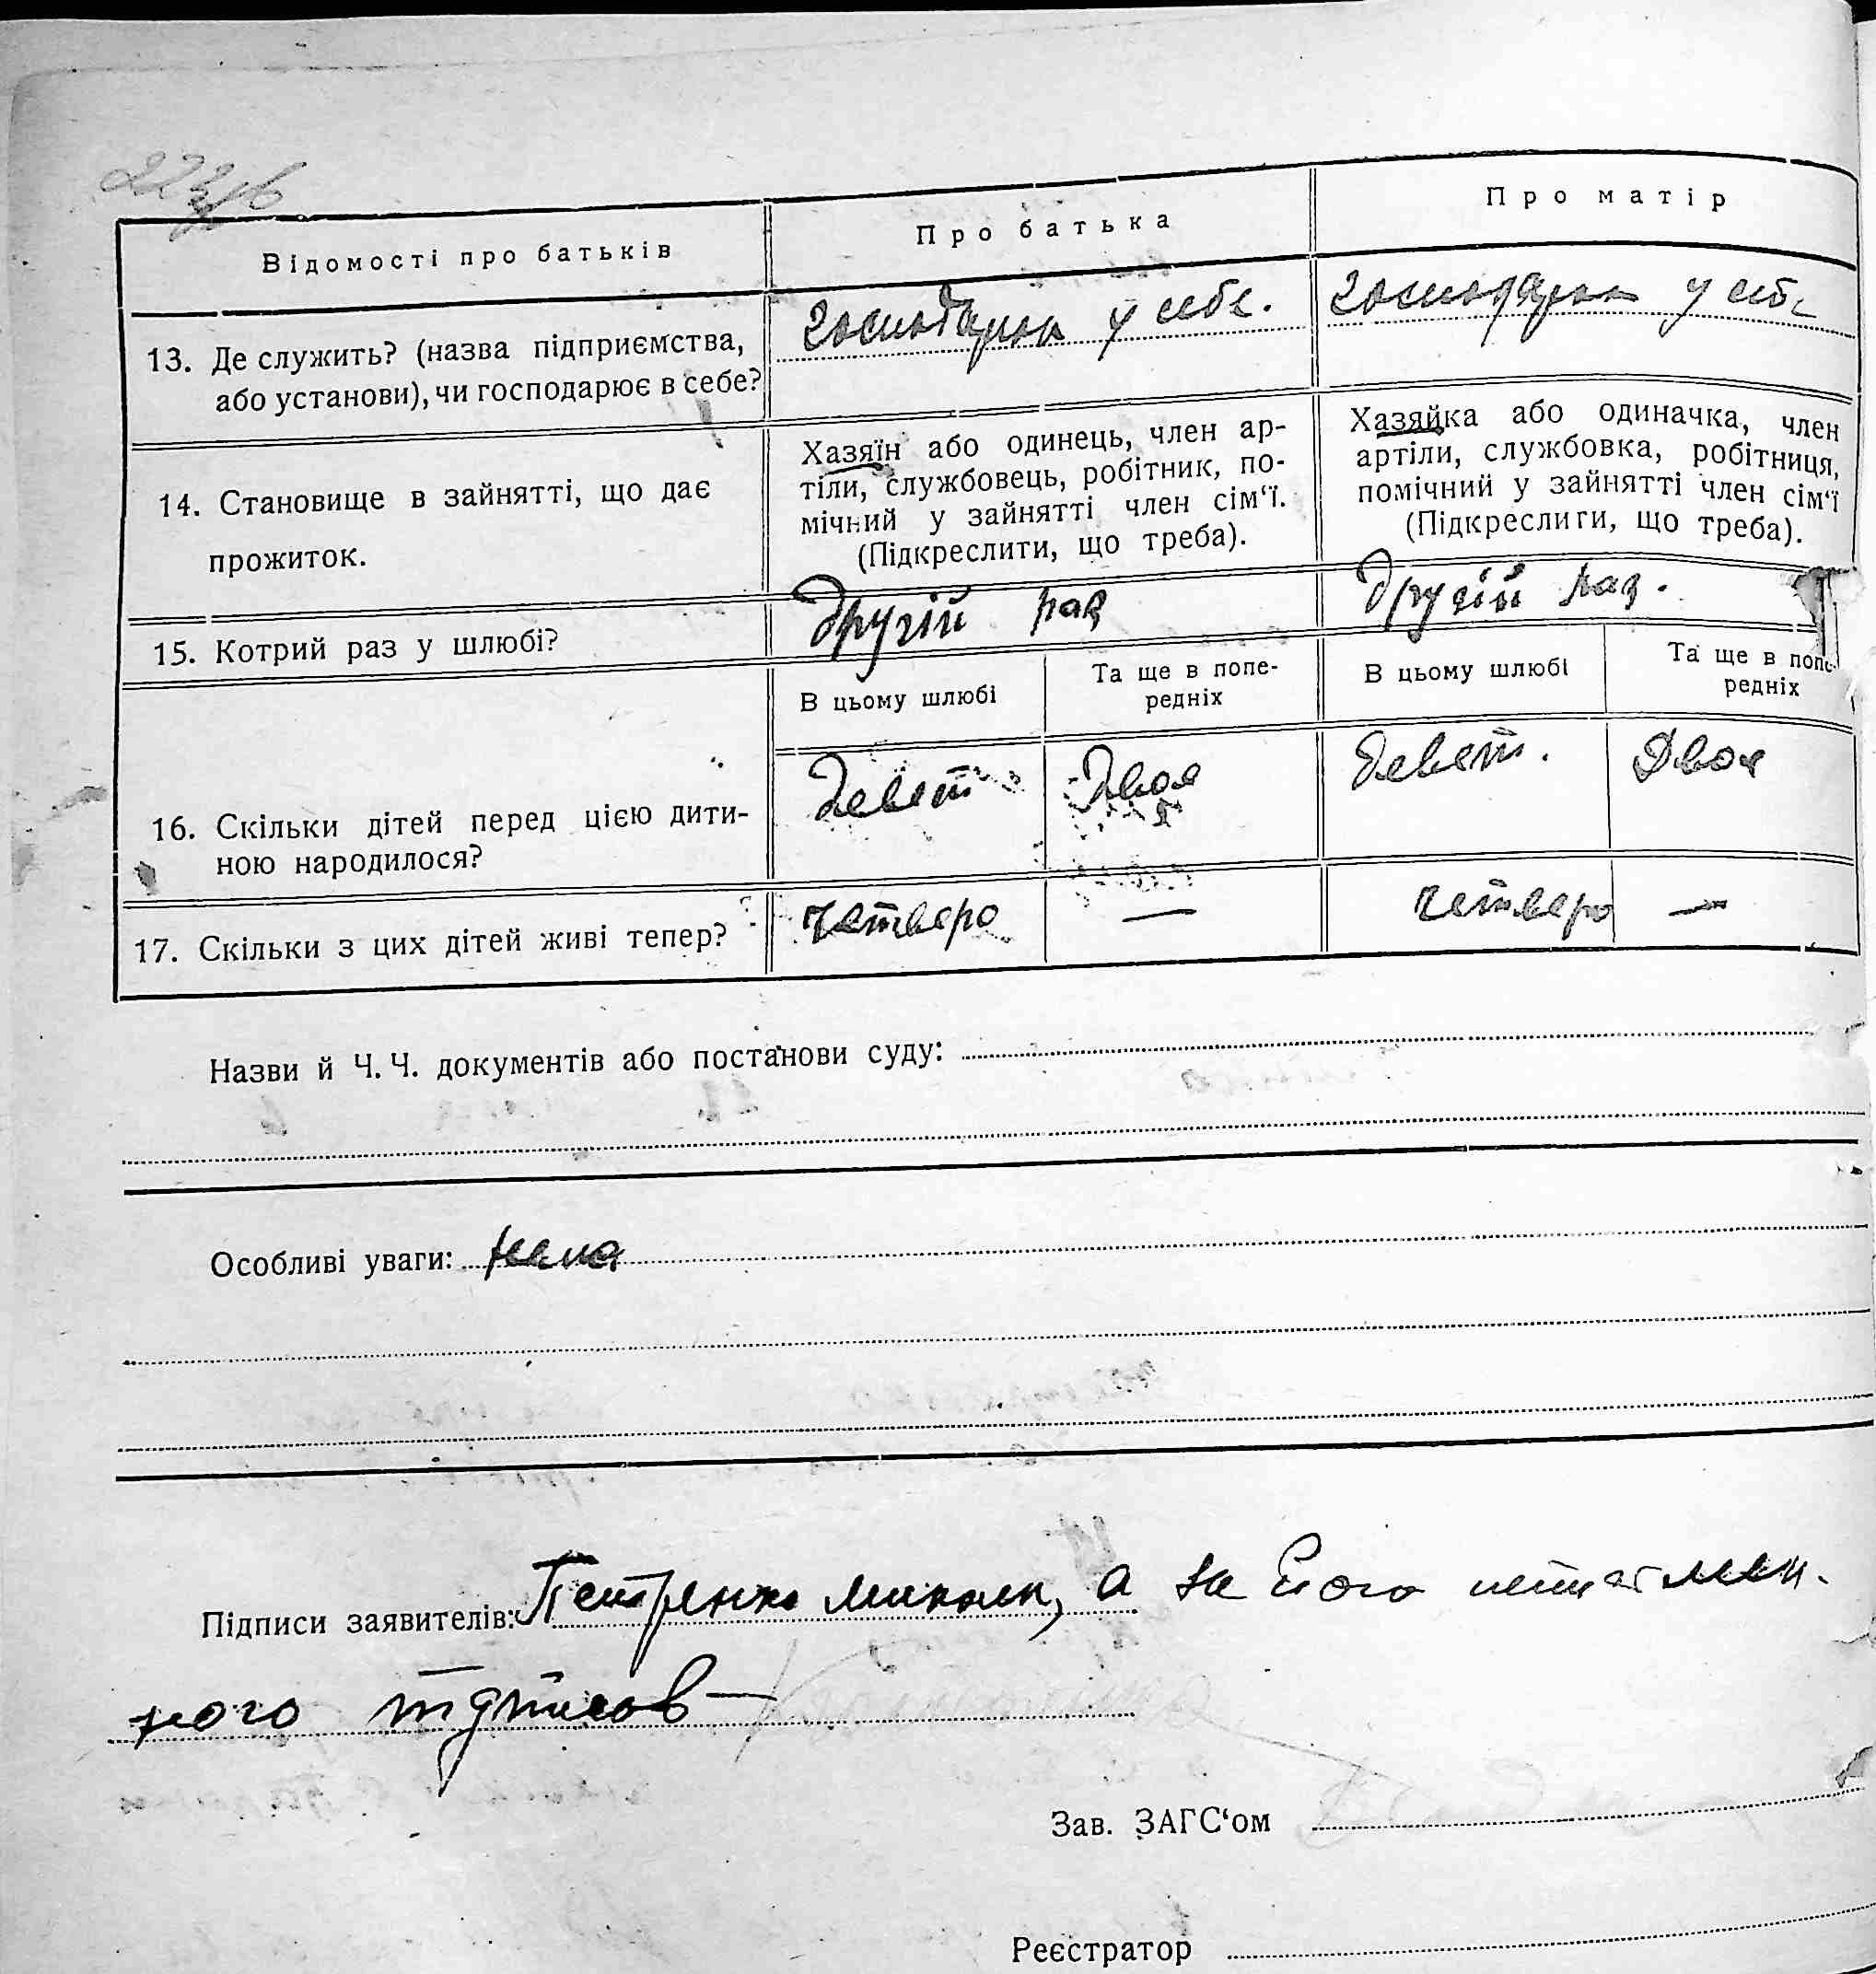 Відомості про батьків
Про батька
Про матір
13. Де служить? (назва підприємства,
або установи), чи господарює в себе?
господарюе у себе.
господарюе у себе
14. Становище в зайнятті, що дає
прожиток.
Хазяїн або одинець, член ар-
тіли, службовець, робітник, по-
мічний у зайнятті член сім'ї.
(Підкреслити, що треба).
Хазяйка або одиначка, член
артіли, службовка, робітниця,
помічний у зайнятті член сім'ї
(Підкреслити, що треба).
15. Котрий раз у шлюбі?
другій раз
другій раз.
В цьому шлюбі
Та ще в попе-
редніх
В цьому шлюбі
Та ще в попе-
редніх
16. Скільки дітей перед цією дити-
ною народилося?
девет
двоя
девет.
Двоя
17. Скільки з цих дітей живі тепер?
четверо
—
четверо
—
Назви й Ч. Ч. документів або постанови суду:
Особливі уваги: нема
Підписи заявителів: Петренко Микола, а за його неписмен-
ного підписав
Зав. ЗАГС'ом
Реєстратор